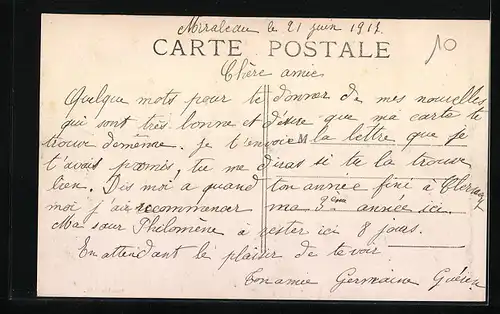 Mirabeau le 21 juin 1917.
CARTE POSTALE
10
Chère amie
Quelque mots pour te donner de mes nouvelles
qui sont très bonne et désire que ma carte te
trouve de même. je t'envoie la lettre que je
M
t'avais promis, tu me diras si tu la trouve
bien. Dis moi a quand ton année fini à
moi j'ai recommancer ma 3ème année ici.
Ma sœur Philomène à rester ici 8 jours.
En attendant le plaisir de te voir.
Ton amie Germaine Guérin